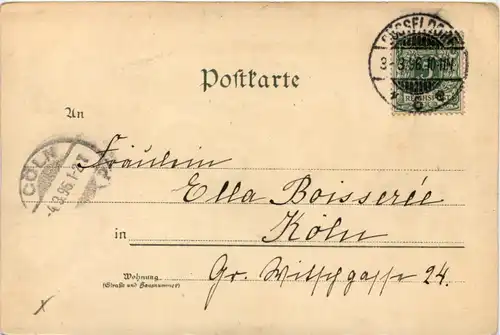 DÜSSELDORF
3-3.96.10-11N.
* c *
5
REICHSPOST
Postkarte
An
CÖLN
4.3.96.1-2
Fräulein
Ella Boisserée
in Köln
Wohnung
(Straße und Hausnummer)
Gr. Witschgasse 24.